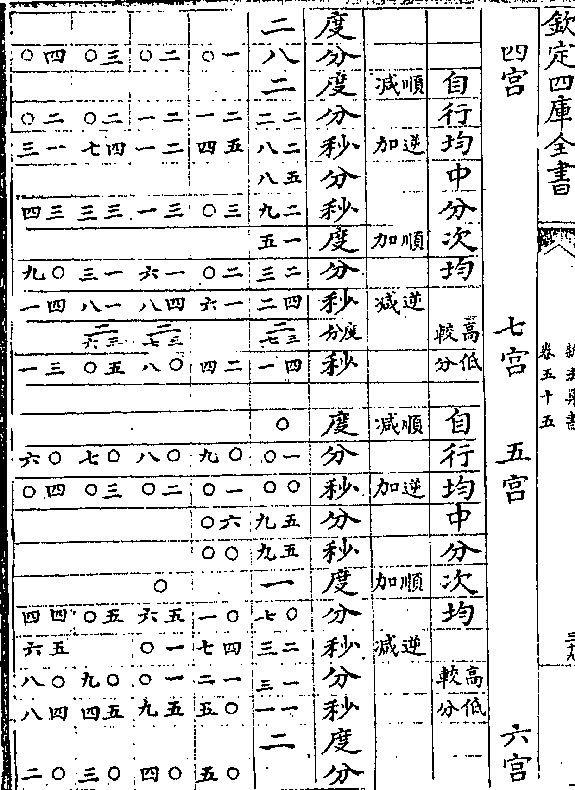 欽定四庫全書
卷五十五
四宮 七宮 五宮 六宮
自行均 中分 次均 高低較分 自行均 中分 次均 高低較分
順減 逆加 順加 逆減 順減 逆加 順加 逆減
度 分 度 分 秒 分 秒 度 分 秒 度分 秒 度 分 秒 分 秒 度 分 秒 分 秒 度 分
二 八 二 二二 二八 五八 二九 一五 二三 四二 二三七 四一 ○ 一○ ○○ 五九 五九 一 ○七 二三 一三 一一 二
一○ 二一 五四 三○ 二○ 一六 二四 ○九 一○ 六○ ○○ ○一 四七 一二 ○五 ○五
二○ 二一 二一 三一 一六 四八 二三七 ○八 ○八 二○ ○ 五六 一○ 一○ 五九 ○四
三○ 二○ 四七 三三 一三 一八 二三六 五○ ○七 三○ 五○ ○九 五四 ○三
四○ 二○ 一三 三四 ○九 四一 三一 ○六 四○ 四四 五六 ○八 四八 ○二